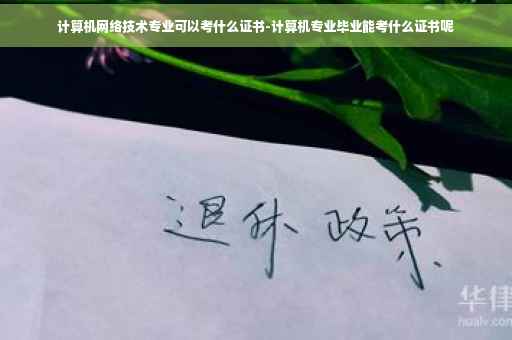 计算机网络技术专业可以考什么证书-计算机专业毕业能考什么证书呢
退休 政策
华律
hualv.com